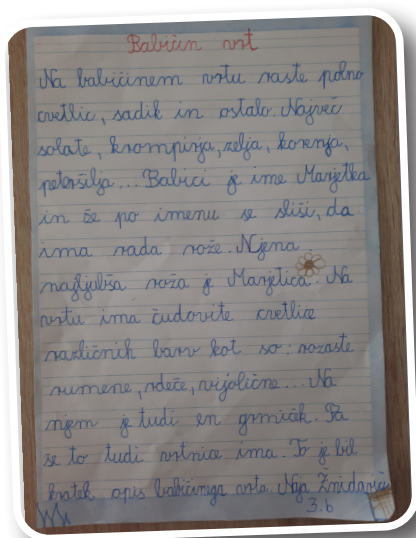 Babičin vrt
Na babičinem vrtu raste polno
cvetlic, sadik in ostalo. Največ
solate, krompirja, zelja, korenja,
peteršilja... Babici je ime Marjetka
in že po imenu se sliši, da
ima rada rože. Njena
najljubša roža je Marjetica. Na
vrtu ima čudovite cvetlice
različnih barv kot so: rozaste
rumene, rdeče, vijolične... Na
njem je tudi en grmiček. Pa
še to tudi vrtnice ima. To je bil
kratek opis babičinega vrta. Naja Žnidaršič
3.b